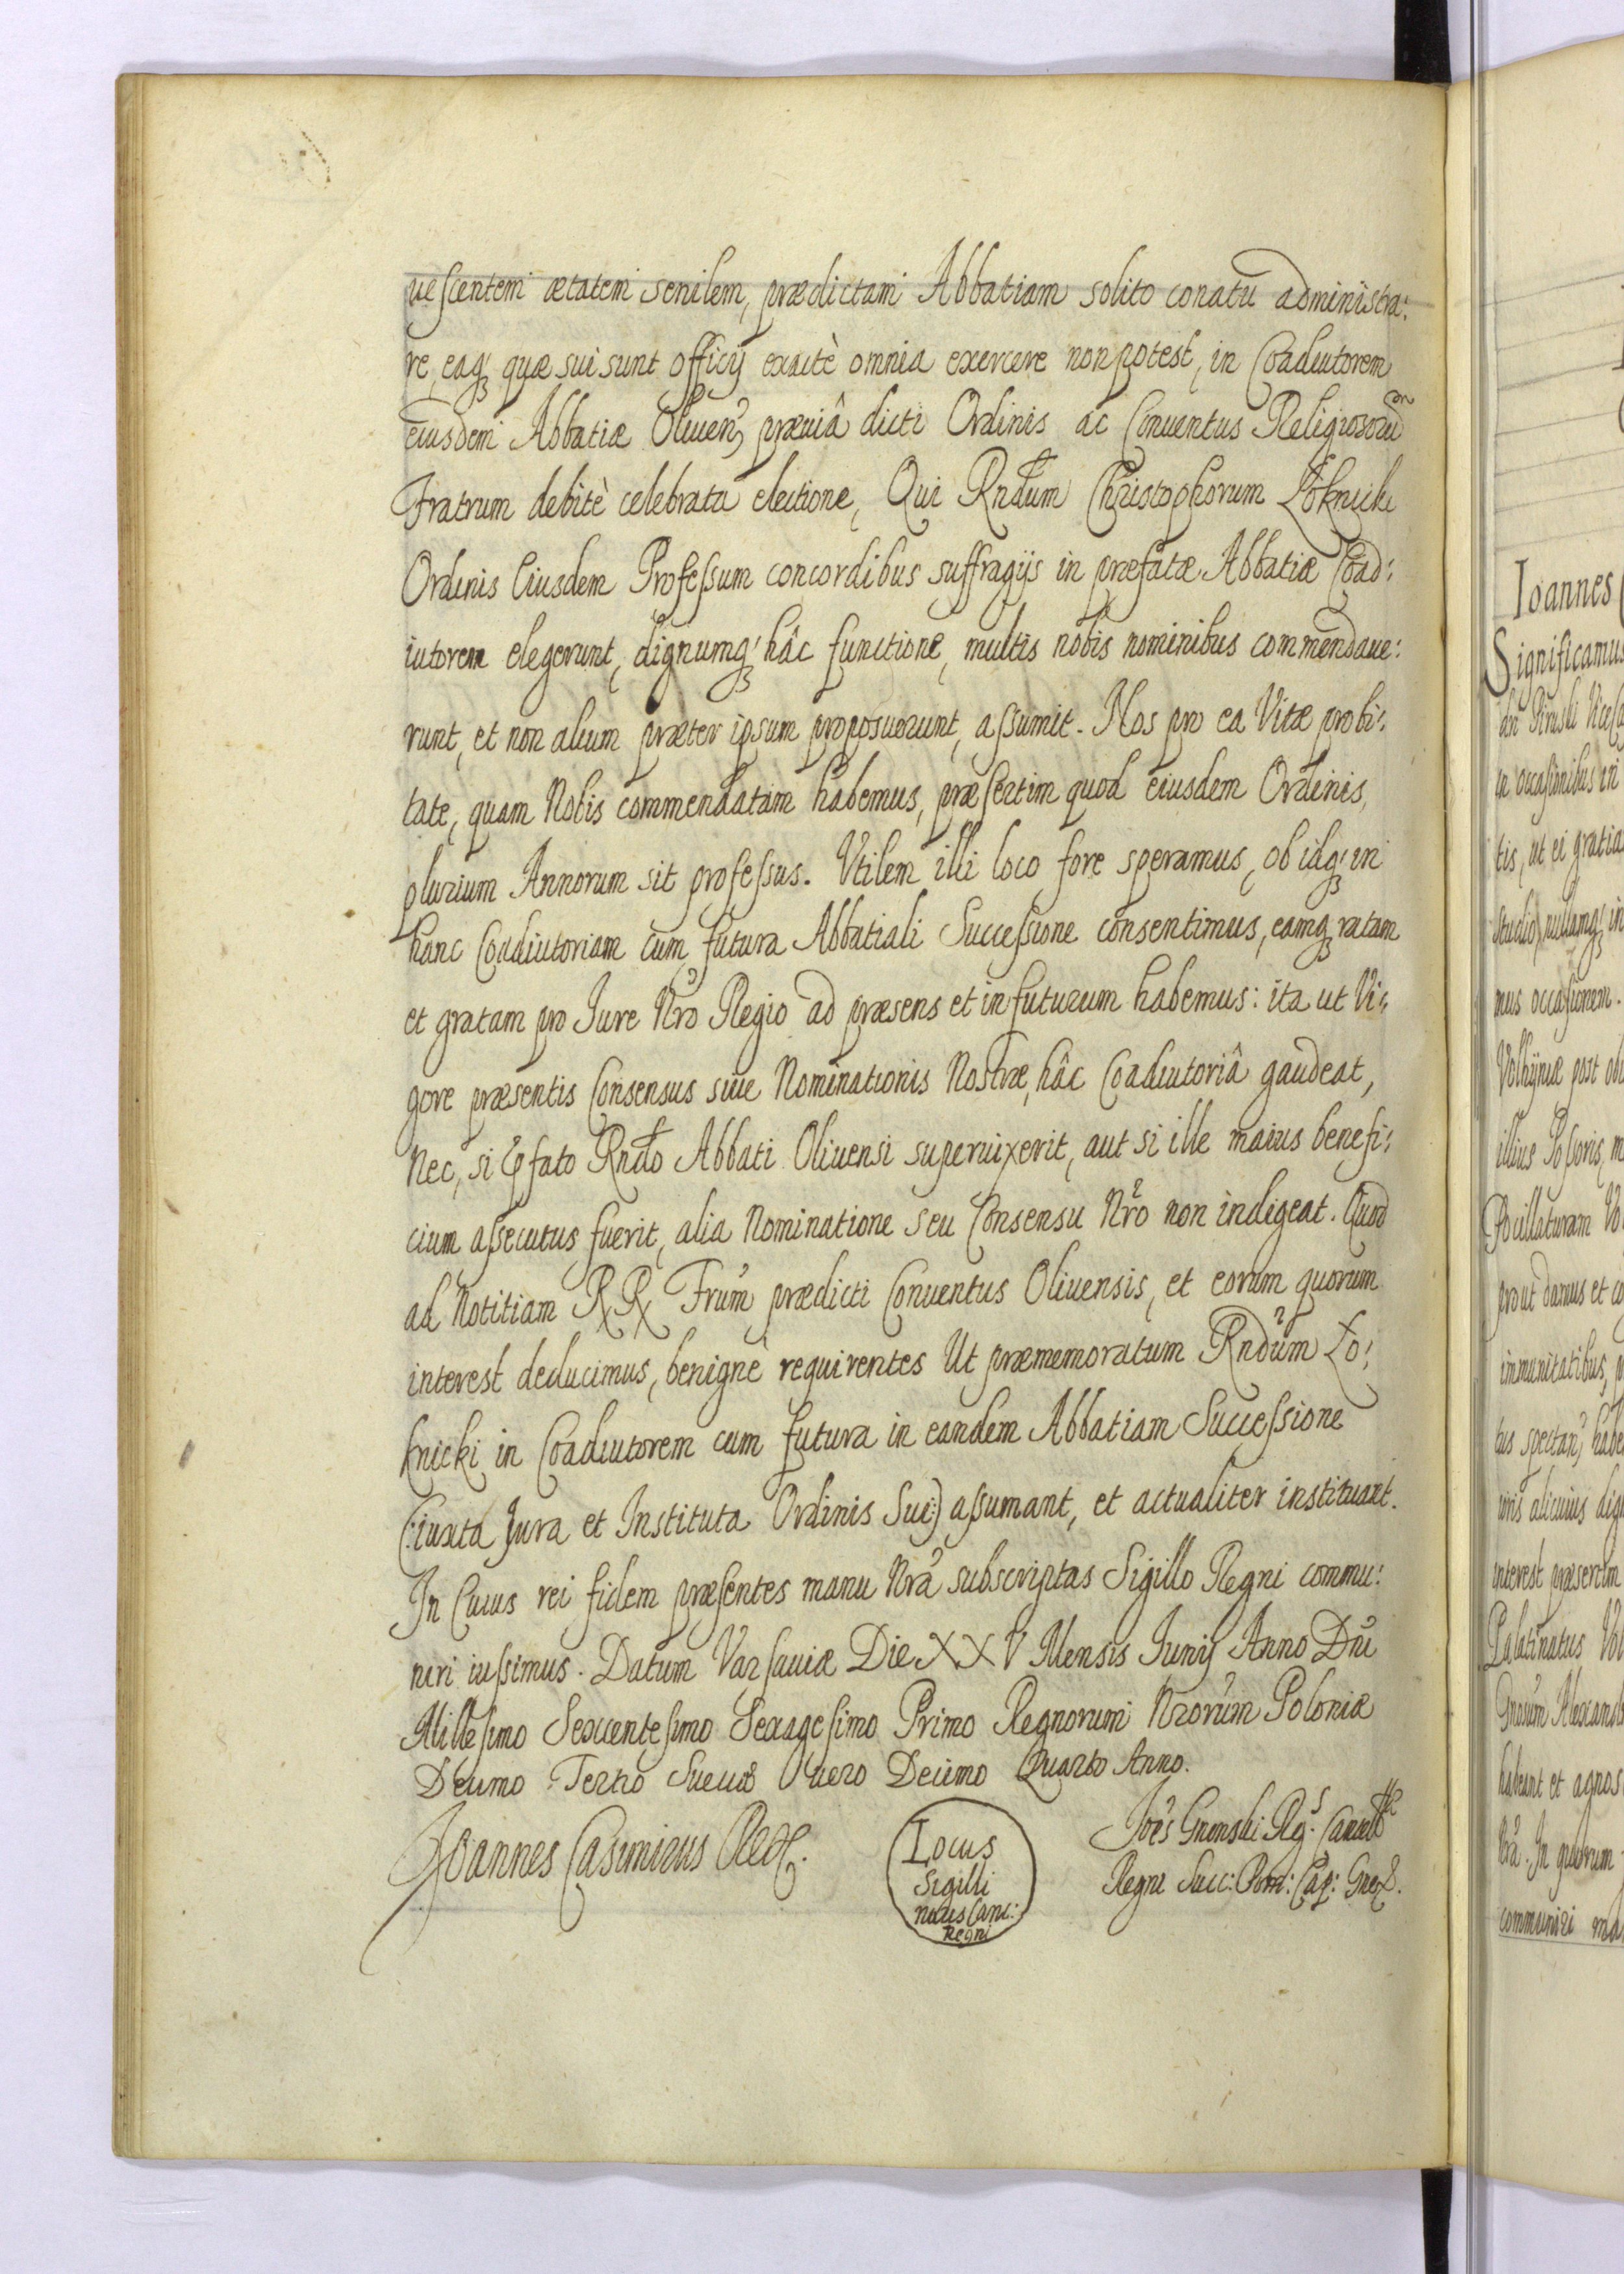 uescentem ætatem senilem, prædictam Abbatiam solito conatu administra:
re, eaq3 quæ sui sunt officij exactè omnia exercere non potest, in Coadiutorem
eiusdem Abbatiæ Oliuen, præuiâ dicti Ordinis ac Conuentus Religiosorũ
Fratrum debitè celebrata electione, Qui Rndum Christophorum Łoknicki
Ordinis Eiusdem Professum concordibus suffragijs in præfatæ Abbatiæ Coad:
iutorem elegerunt, dignumq3 hâc functione, multis nobis nominibus commendaue:
runt, et non alium præter ipsum proposuerunt, assumit. Nos pro ea Vitæ probi:
tate, quam Nobis commendatam habemus, præsertim quod eiusdem Ordinis,
plurium Annorum sit professus. Vtilem illi loco fore speramus, ob idq3 in
hanc Coadiutoriam cum futura Abbatiali Successione consentimus, eamq3 ratam
et gratam pro Iure Nro Regio ad præsens et in futurum habemus: ita ut Vi:
gore præsentis Consensus siue Nominationis Nostræ, hâc Coadiutoriâ gaudeat,
Nec, si Pfato Rndo Abbati Oliuensi superuixerit, aut si ille maius benefi:
cium assecutus fuerit, alia Nominatione seu Consensu Nro non indigeat. Quod
ad Notitiam RR Frum prædicti Conuentus Oliuensis, et eorum quorum
interest deducimus, benignè requirentes Ut præmemoratum Rndum Ło:
knicki in Coadiutorem cum futura in eandem Abbatiam Successione
(:iuxta Jura et Instituta Ordinis Sui:) assumant, et actualiter instituant.
In Cuius rei fidem præsentes manu Nra subscriptas Sigillo Regni commu:
niri iussimus. Datum Varsauiæ Die XXV Mensis Iunij Anno Dni
Millesimo Sexcentesimo Sexagesimo Primo Regnorum Nrorum Poloniæ
Decimo Tertio Sueciæ uero Decimo Quarto Anno.
Joannes Casimirus Rex.
Locus
Sigilli
Canc:
Regni
Joes Gninski Reg.
Regni Succ: Pom: Cap: Gnez.
Ioannes
Significamus
in occasionibus in
tis, ut ei gratia
studio, nullamq3 in
mus occasionem.
Volhyniæ post obi
Pocillaturam Vo
prout damus et co
immunitatibus, p
interest præsertim
Palatinatus Vol
habeant et agnos
Nra. In quorum
communiri ma